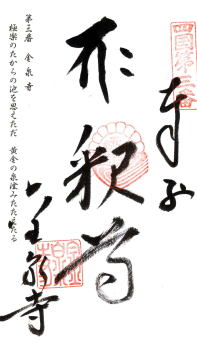 四國第三番
奉納
釈
第三番 金泉寺
極楽のたからの池を思えただ 黄金の泉澄みたたえたる
金泉寺